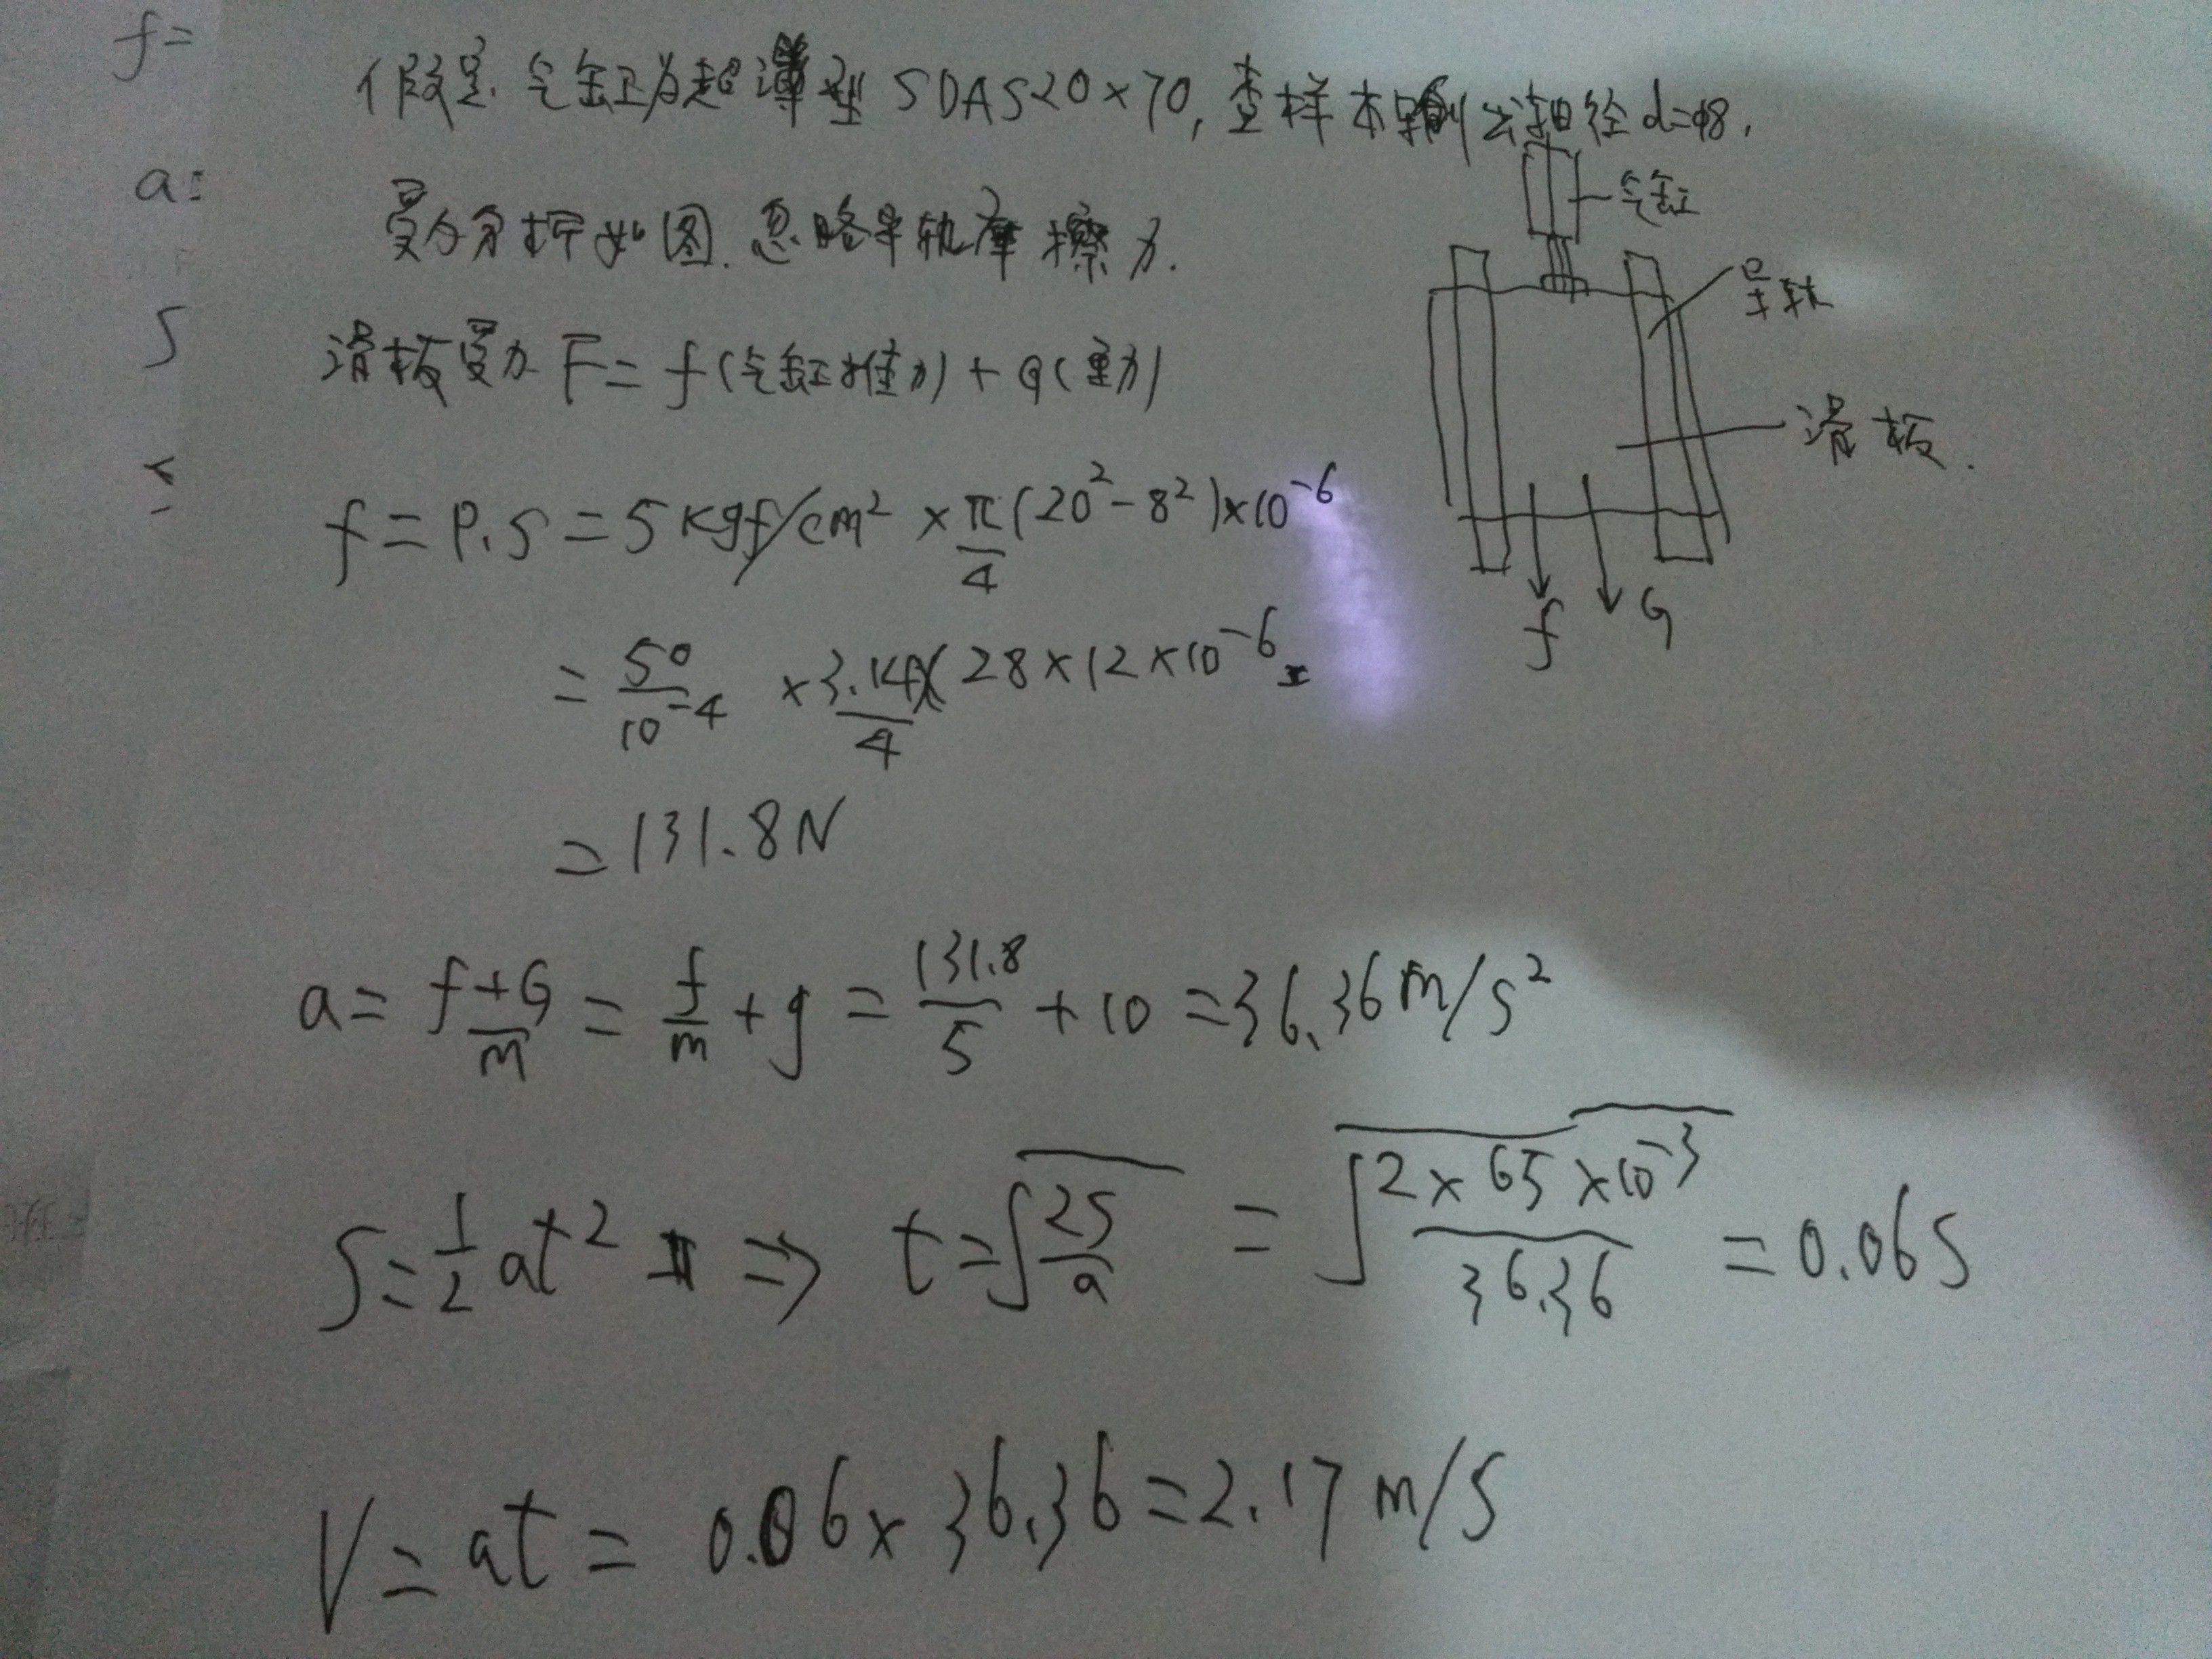 f=
假定.气缸为超薄型 SDAS20×70,查样本输出轴径d=φ8,
a=
气缸
受力分析如图.忽略导轨摩擦力.
导轨
S
滑板受力 F=f(气缸推力)+G(重力)
滑板.
f=P.S=5kgf/cm²×π/4(20²-8²)×10⁻⁶
f G
=50/10⁻⁴ ×3.14/4×(28×12×10⁻⁶
=131.8N
a=f+G/m=f/m+g=131.8/5+10=36.36m/s²
S=1/2at² ⇒ t=√2S/a =√2×65×10⁻³/36.36 =0.06s
V=at=0.06×36.36=2.17m/s